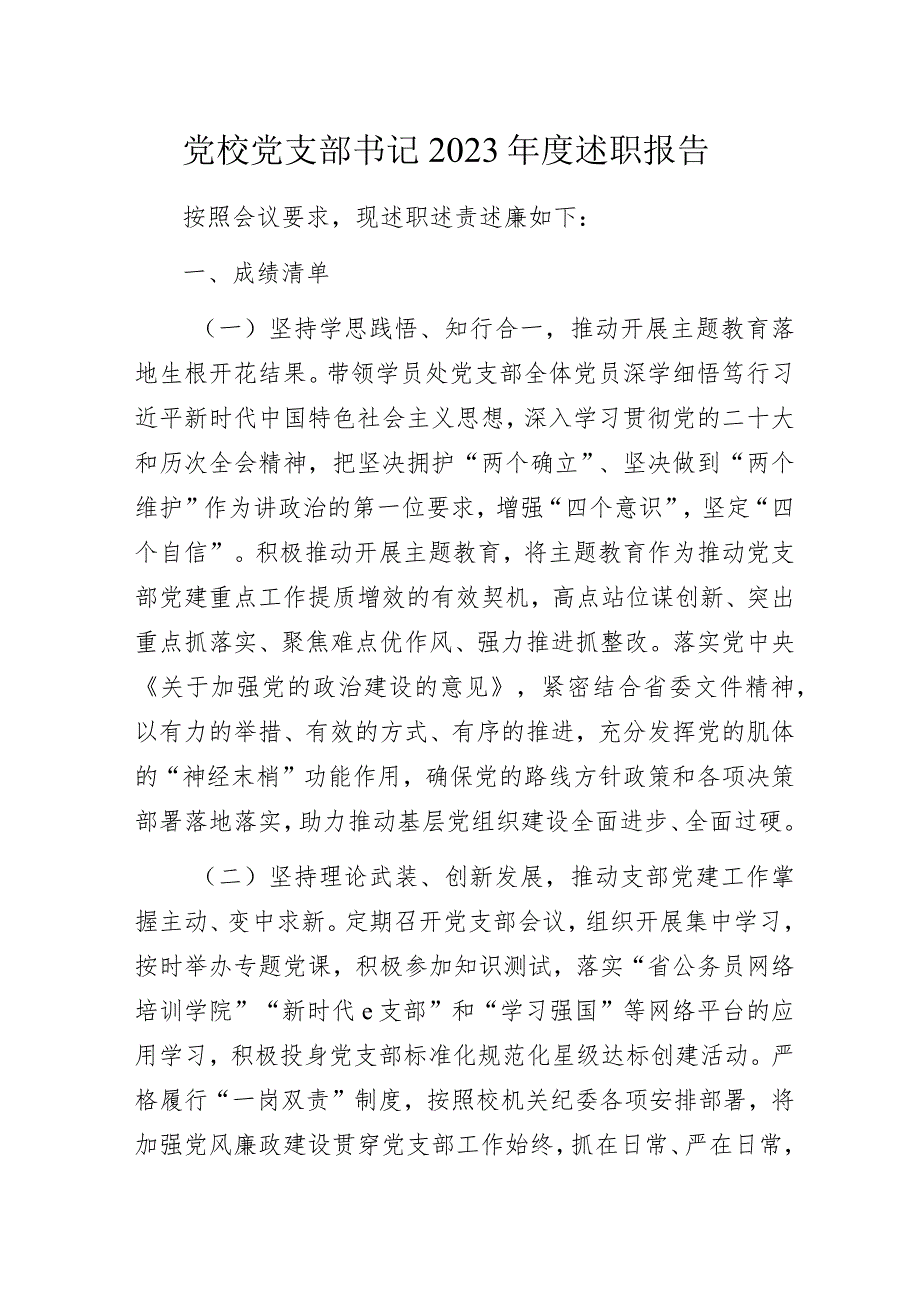 党校党支部书记 2023 年度述职报告
按照会议要求，现述职述责述廉如下：
一、成绩清单
（一）坚持学思践悟、知行合一，推动开展主题教育落
地生根开花结果。带领学员处党支部全体党员深学细悟笃行习
近平新时代中国特色社会主义思想，深入学习贯彻党的二十大
和历次全会精神，把坚决拥护“两个确立”、坚决做到“两个
维护”作为讲政治的第一位要求，增强“四个意识”，坚定“四
个自信”。积极推动开展主题教育，将主题教育作为推动党支
部党建重点工作提质增效的有效契机，高点站位谋创新、突出
重点抓落实、聚焦难点优作风、强力推进抓整改。落实党中央
《关于加强党的政治建设的意见》，紧密结合省委文件精神，
以有力的举措、有效的方式、有序的推进，充分发挥党的肌体
的“神经末梢”功能作用，确保党的路线方针政策和各项决策
部署落地落实，助力推动基层党组织建设全面进步、全面过硬。
（二）坚持理论武装、创新发展，推动支部党建工作掌
握主动、变中求新。定期召开党支部会议，组织开展集中学习，
按时举办专题党课，积极参加知识测试，落实“省公务员网络
培训学院”“新时代 e 支部”和“学习强国”等网络平台的应
用学习，积极投身党支部标准化规范化星级达标创建活动。严
格履行“一岗双责”制度，按照校机关纪委各项安排部署，将
加强党风廉政建设贯穿党支部工作始终，抓在日常、严在日常，